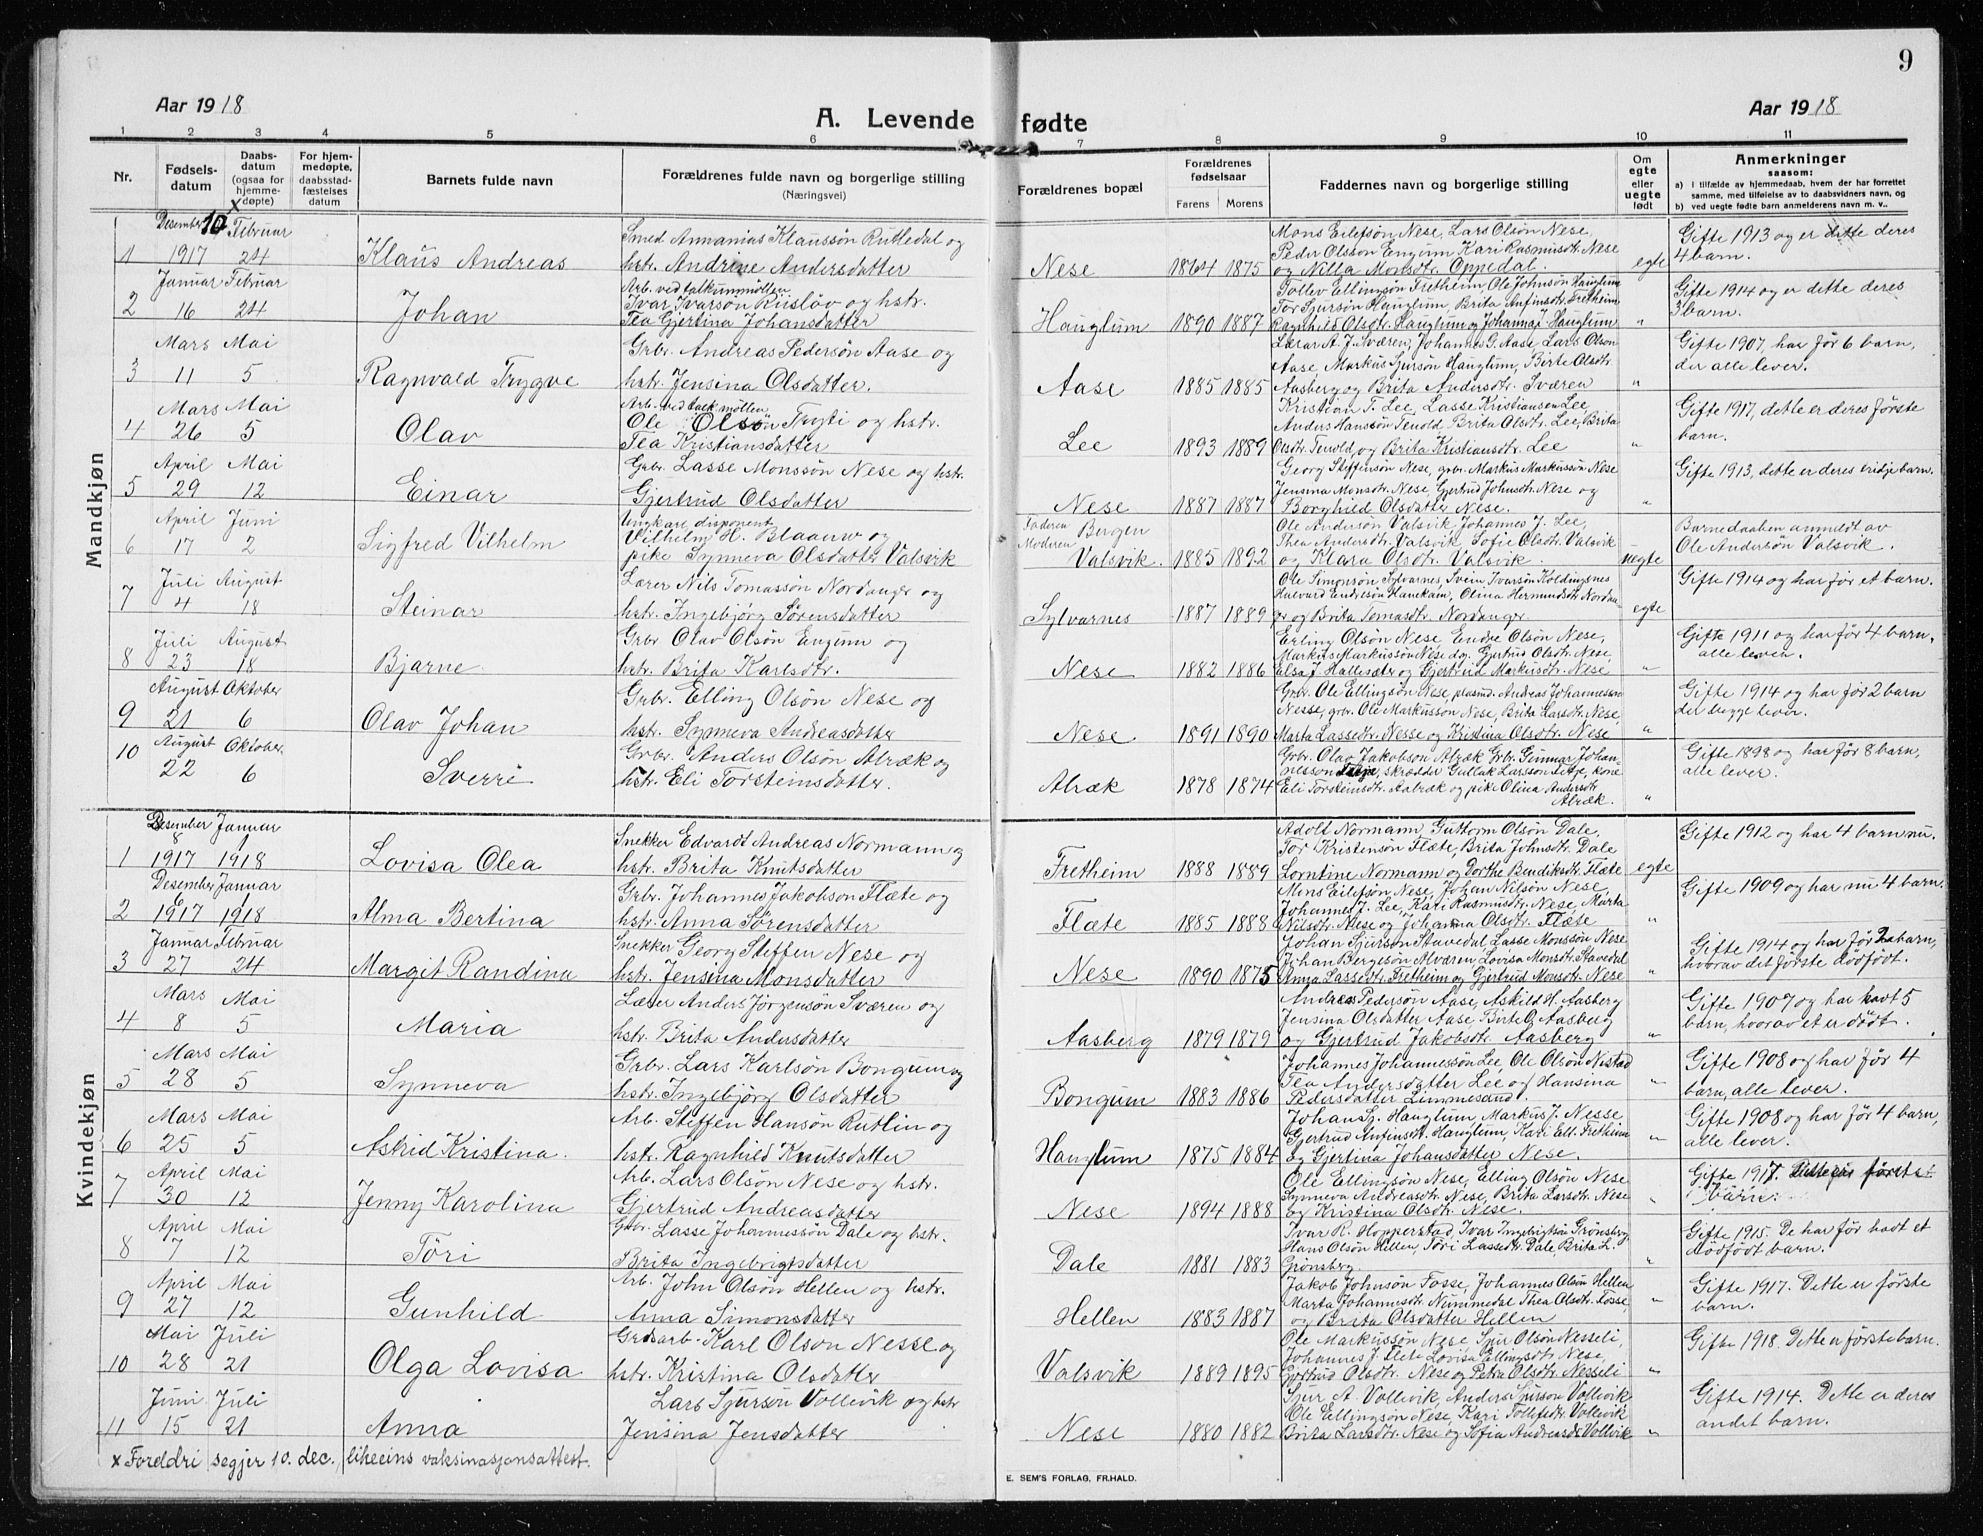 9
Aar 1918
A. Levende fødte
Aar 1918
1 2 3 4 5 6 7 8 9 10 11
Nr.
Fødsels-
datum
Daabs-
datum
(ogsaa for
hjemme-
døpte)
For hjem-
medøpte,
daabsstad-
fæstelses
datum
Barnets fulde navn
Forældrenes fulde navn og borgerlige stilling
(Næringsvei)
Forældrenes bopæl
Forældrenes
fødselsaar
Farens Morens
Faddernes navn og borgerlige stilling
Om
egte
eller
uegte
født
Anmerkninger
saasom:
a) i tilfælde av hjemmedaab, hvem der har forrettet
samme, med tilføielse av to daabsvidners navn, og
b) ved uegte fødte barn anmelderens navn m. v..
Mandkjøn
Desember 10 x Februar
1 1917 24 Klaus Andreas
Smed Annanias Klaussøn Rutledal og
hstr. Andrine Andersdatter
Nese 1864 1875
Mons Eilefsøn Nese, Lars Olsøn Nese,
Peder Olsson Engum Kari Rasmusdtr. Nese
og Nilla Monsdtr. Oppedal.
egte
Gifte 1913 og er dette deres
4 barn.
Januar Februar
2 16 24 Johan
Arb. ved talkummøllen
Ivar Ivarsøn Risløv og hstr.
Tea Gjertina Johansdatter
Hauglum 1890 1887
Tollev Ellingsøn Fretheim, Ole Johnsøn Hauglum
Tor Sjursøn Hauglum, Brita Anfinsdtr. Fretheim
Ragnhild Olsdtr. Hauglum og Johanna J. Hauglum
"
Gifte 1914 og er dette deres
3 barn.
Mars Mai
3 11 5 Ragnvald Trygve
Grbr. Andreas Pedersøn Aase og
hstr. Jensina Olsdatter.
Aase 1885 1885
Lærar A. J. Sværen, Johannes G. Aase Lars Olson
Aase, Markus Sjursøn Hauglum, Birte Olsdtr.
Aasberg og Brita Andersdtr. Sværen
"
Gifte 1907, har før 6 barn,
der alle lever.
Mars Mai
4 26 5 Olav
Arb. ved talk.møllen
Ole Olsøn Trysti og hstr.
Tea Kristiansdatter
Lee 1893 1889
Kristian T. Lee, Lasse Kristiansen Lee
Anders Hanssøn Tenold, Brita Olsdtr. Lee, Brita
Olsdtr. Tenold, og Brita Kristiansdtr. Lee
"
Gifte 1917, dette er deres første
barn.
April Mai
5 29 12 Einar
Grbr. Lasse Monssøn Nese og hstr.
Gjertrud Olsdatter
Nese 1887 1887
Georg Steffensøn Nese, grbr. Markus Markussøn Nese
Jensina Monsdtr. Nese, Gjertrud Johnsdtr. Nese og
Borghild Olsdatter Nese.
"
Gifte 1913, dette er deres tridje barn.
April Juni
6 17 2 Sigfred Vilhelm
Ungkare, disponent
Vilhelm H. Blaauw og
pike Synneva Olsdatter Valsvik
Faderen Bergen
Moderen Valsvik. 1885 1892
Ole Andersøn Valsvik, Johannes J. Lee,
Thea Andersdtr. Valsvik, Sofie Olsdtr. Valsvik
og Klara Olsdtr. Valsvik.
uegte
Barnedaaben anmeldt av
Ole Andersøn Valsvik.
Juli August
7 4 18 Steinar
Lærer Nils Tomassøn Nordanger og
hstr. Ingebjørg Sørensdatter
Sylvarnes 1887 1889
Ole Simonsøn Sylvarnes, Svein Ivarsøn Koldingsnes
Halvard Endresøn Haukaas, Olina Hermundsdtr. Nordan-
ger og Brita Tomasdtr. Nordanger
egte
Gifte 1914 og har før et barn.
Juli August
8 23 18 Bjarne.
Grbr Olav Olsøn Engum og
hstr. Brita Karlsdtr.
Nese 1882 1886
Erling Olsøn Nese, Endre Olsøn Nese,
Markus Markussøn Nese og. Gjertrud Olsdtr. Nese
Elsa J Hallesæter og Gjertrud Markusdtr. Nese
"
Gifte 1911 og har før 4 barn,
alle lever.
August Oktober
9 21 6 Olav Johan
Grbr. Elling Olsøn Nese og
hstr. Synneva Andreasdatter
Nese 1891 1890
Grbr. Ole Ellingsøn Nese, Andreas Johannessøn
Nesse, grbr. Ole Markussøn Nese, Brita Larsdtr. Nese,
Marta Lassedtr. Nesse og Kristina Olsdtr. Nese
"
Gifte 1914 og har før 2 barn
der begge lever.
August Oktober
10 22 6 Sverre
Grbr. Anders Olsøn Alræk og
hstr. Eli Torsteinsdatter.
Alræk 1878 1874
Grbr. Olav Jakobson Alræk Grbr. Gunnar Johan-
nesson, skrædder Gullak Larsson, kone
Eli Torsteinsdtr. Aalræk og pike Olina Andersdtr
Alræk.
"
Gifte 1898 og har før 8 barn,
alle lever.
Kvindekjøn
Desember Januar
8 1
1 1917 1918 Lovisa Olea
Snekker Edvardt Andreas Normann og
hstr. Brita Knutsdatter
Fretheim 1888 1889
Adolf Normann, Guttorm Olsøn Dale,
Tor Kristensøn Flæte, Brita Johnsdtr. Dale
Lorntine Normann og Dorthe Bendiksdtr. Flæte
egte
Gifte 1912 og har 4 barn nu.
Desember Januar
6 1
2 1917 1918 Alma Bertina
Grbr. Johannes Jakobson Flæte og
hstr. Anna Sørensdatter
Flæte 1885 1888
Mons Eilefsøn Nese, Johan Nilsøn Nese,
Johannes J. Lee, Kari Rasmusdtr. Nese Marta
Nilsdtr. Nese og Johanna Olsdtr. Flæte
"
Gifte 1909 og har nu 4 barn.
Januar Februar
3 27 24 Margit Randina
Snekker Georg Steffen Nese og
hstr. Jensina Monsdatter
Nese 1890 1875
Johan Sjurson Stavedal Lasse Monssøn Nese
Johan Børgesøn Alværen, Lovisa Monsdtr. Stavedal
Anna Lassedtr. Fretheim og Gjertrud Monsdtr. Nese
"
Gifte 1914 og har før 2 barn,
hvorav det første dødfødt.
Mars Mai
4 8 5 Maria
Lærer Anders Jørgensøn Sværen og
hstr. Brita Andersdatter
Aasberg 1879 1879
Andreas Pedersøn Aase, Askild H. Aasberg
Jensina Olsdatter Aase Birte O. Aasberg
og Gjertrud Jakobsdtr. Aasberg
"
Gifte 1907 og har havt 5
barn, hvorav et er dødt.
Mars Mai
5 28 5 Synneva
Grbr. Lars Karlsøn Bongum og
hstr. Ingebjørg Olsdatter
Bongum 1883 1886
Johannes Johannessøn Lee, Ole Olsøn Nistad
Tea Andersdatter Lee og Hansina
Pedersdatter Limmesand.
"
Gifte 1908 og har før 4
barn, alle lever.
Mars Mai
6 25 5 Astrid Kristina.
Arb. Steffen Hansøn Rutlin og
hstr. Ragnhild Knutsdatter
Hauglum 1875 1884
Johan Sj. Hauglum, Markus J. Nesse
Gjertrud Anfinsdtr. Hauglum, Kari Ell. Fretheim
og Gjertina Johansdatter Nese.
"
Gifte 1908 og har før 4 barn,
alle lever.
April Mai
7 30 12 Jenny Karolina
Arb. Lars Olsøn Nese og hstr.
Gjertrud Andreasdatter
Nese 1894 1888
Ole Ellingsøn Nese, Elling Olsøn Nese
Synneva Andreasdtr. Nese, Brita Larsdtr. Nese
og Kristina Olsdtr. Nese.
"
Gifte 1917. Dette er første
barn.
April Mai
8 7 12 Tøri
Gbr. Lasse Johannessøn Dale og hstr.
Brita Ingebrigtsdatter
Dale 1881 1883
Ivar R. Hopperstad, Ivar Ingebrigtsøn Grønsberg,
Hans Olsøn Hellen, Tøri Lassedtr. Dale Brita L.
Grønsberg.
"
Gifte 1915. De har før havt et
dødfødt barn.
April Mai
9 27 12 Gunhild
Arb. John Olsøn Hellen og hstr.
Anna Simonsdatter
Hellen 1883 1887
Jakob Johnsøn Fosse, Johannes Olsøn Hellen
Marta Johannesdtr. Nummedal Thea Olsdtr. Fosse
og Brita Olsdatter Hellen
"
Gifte 1917. Dette er første
barn.
Mai Juli
10 28 21 Olga Lovisa
Grdsarb. Karl Olson Nesse og
hstr. Kristina Olsdatter
Valsvik 1889 1895
Ole Markussøn Nese, Sjur Olsøn Nesseli,
Johannes J. Flete Lovisa Ellingsdtr Nese,
Gjertrud Olsdtr. Nese og Petra Olsdtr Nesseli
"
Gifte 1918. Dette er første barn.
Juni Juli
11 15 21 Anna
Lars Sjursøn Vollevik og hstr
Jensina Jensdatter
Nese 1880 1882
Sjur A. Vollevik, Anders Sjurson Vollevik
Ole Ellingsøn Nese, Kari Tollefsdtr. Vollevik
Brita Larsdtr. Nese og Sofia Andreasdr Vollvik
"
Gifte 1914. Dette er deres
andet barn.
x Foreldri segjer 10. dec. likeeins vaksinasjonsattest.
E. SEM'S FORLAG, FR.HALD.